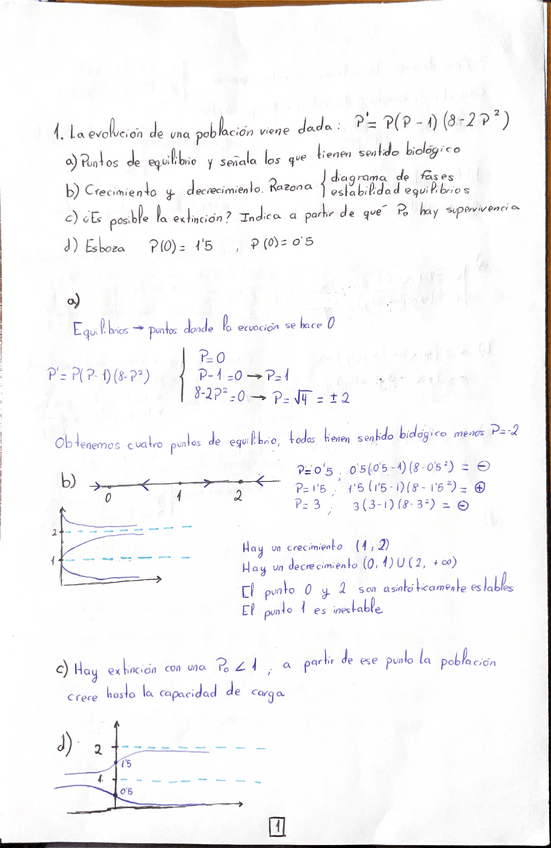 1. La evolución de una población viene dada: P'= P(P-1)(8-2P²)
a) Puntos de equilibrio y señala los que tienen sentido biológico
b) Crecimiento y decrecimiento. Razona { diagrama de fases
estabilidad equilibrios
c) ¿Es posible la extinción? Indica a partir de qué P₀ hay supervivencia
d) Esboza P(0)= 1'5 , P(0)= 0'5
a)
Equilibrios → puntos donde la ecuación se hace 0
P=0
P'= P(P-1)(8-P²) { P-1=0 → P=1
8-2P²=0 → P=√4 = ±2
Obtenemos cuatro puntos de equilibrio, todos tienen sentido biológico menos P=-2
b) 0 1 2
P=0'5 ; 0'5(0'5-1)(8-0'5²) = ⊖
P=1'5 ; 1'5(1'5-1)(8-1'5²) = ⊕
P=3 ; 3(3-1)(8-3²) = ⊖
2
1
Hay un crecimiento (1,2)
Hay un decrecimiento (0,1)∪(2,+∞)
El punto 0 y 2 son asintóticamente estables
El punto 1 es inestable
c) Hay extinción con una P₀<1 , a partir de ese punto la población
crece hasta la capacidad de carga
d) 2
1'5
1
0'5
1